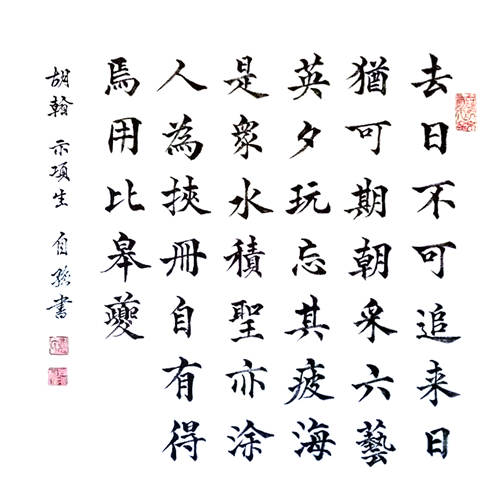 去日不可追来日
猶可期朝采六藝
英夕玩忘其疲海
是衆水積聖亦涂
人為挾冊自有得
焉用比皋夔
胡翰 示項生 自書